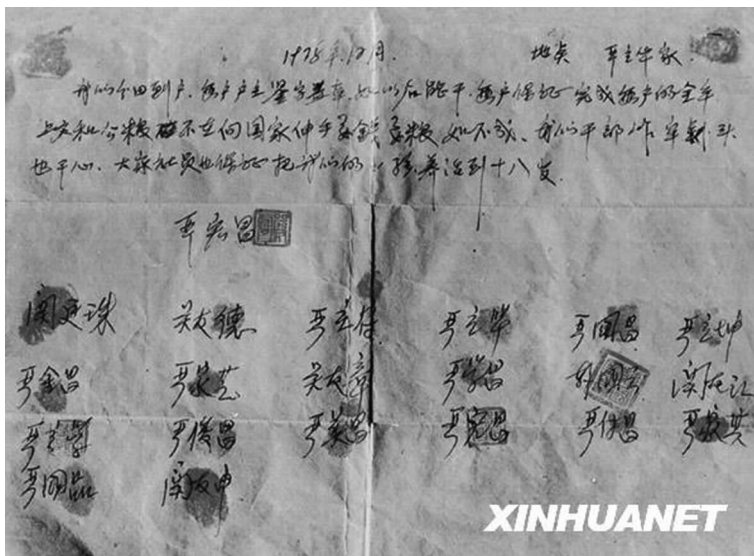 1978年12月. 地点 严立华家.
我们分田到户,每户户主签字盖章,如以后能干,每户保证完成每户的全年
上交和公粮 不在向国家伸手要钱要粮 如不成,我们干部作牢刹头
也干心,大家社员也保证把我们的小孩养活到十八岁.
严宏昌
关廷珠 关友德 严立符 严立华 严国昌 严立坤
严金昌 严家芝 关友章 严学昌 韩国云 关友江
严立学 严俊昌 严美昌 严宏昌 严付昌 严家其
严国品 关友申
XINHUANET